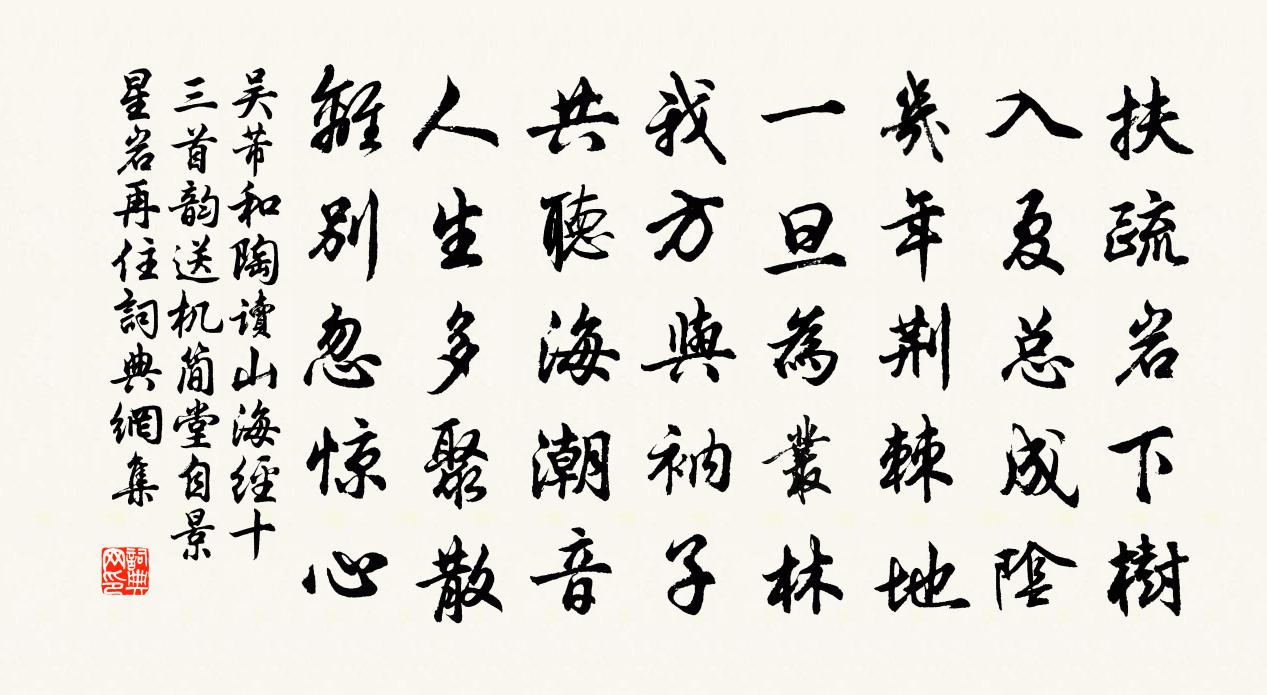 扶疏岩下樹
入夏总成陰
幾年荆棘地
一旦為叢林
我方與衲子
共聽海潮音
人生多聚散
離别忽惊心
吴芾和陶讀山海經十
三首韵送机简堂自景
星岩再住詞典網集
詞典网印